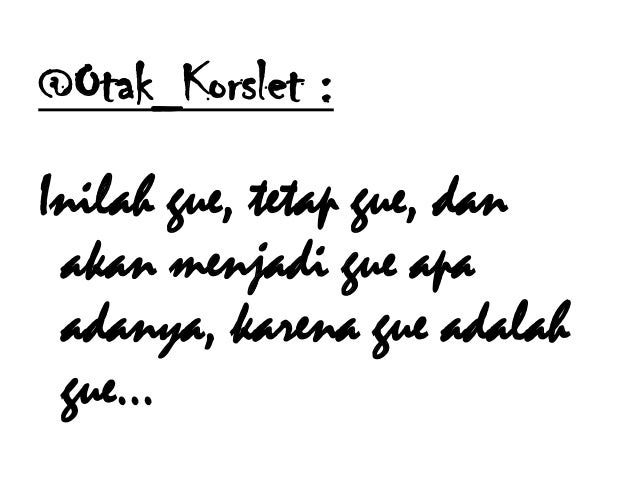 @Otak_Korslet :
Inilah gue, tetap gue, dan
akan menjadi gue apa
adanya, karena gue adalah
gue...